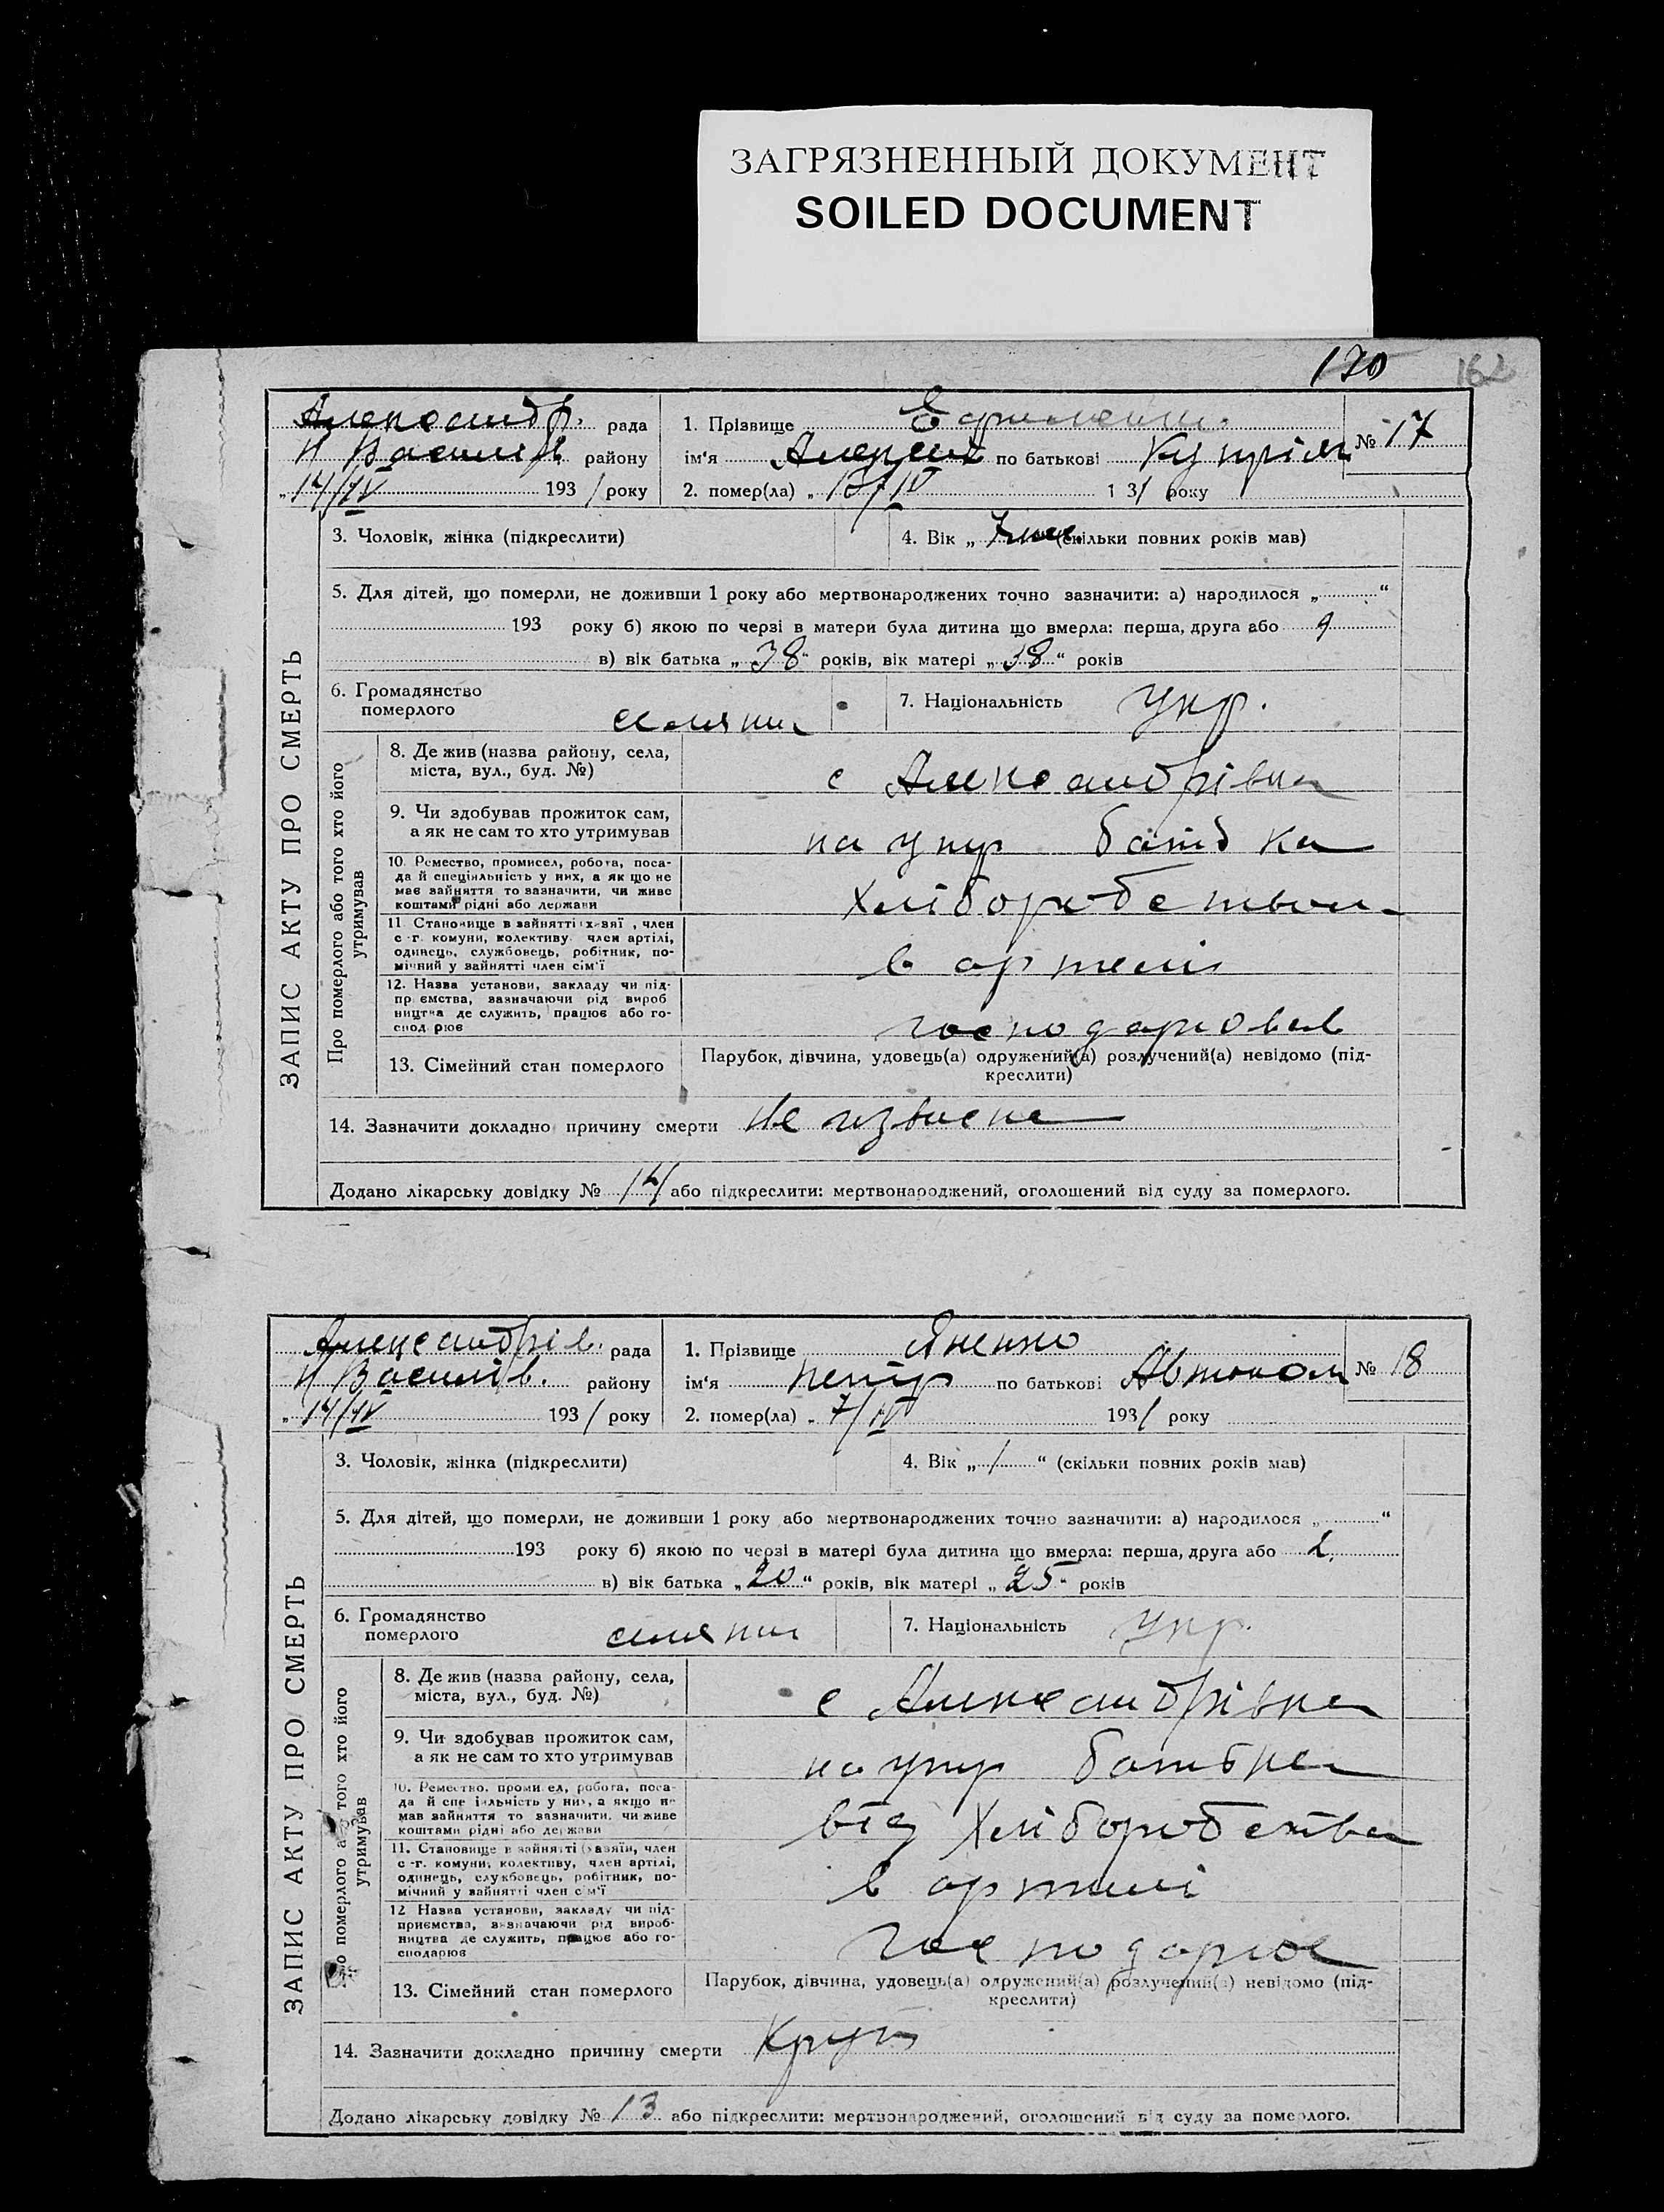 ЗАГРЯЗНЕННЫЙ ДОКУМЕНТ
SOILED DOCUMENT
170 162
Александр. рада
Н Василів району
„14/IV 1931 року
1. Прізвище
ім‘я Алексей по батькові Купріян
№ 17
2. помер(ла) „ /IV 1 31 року
ЗАПИС АКТУ ПРО СМЕРТЬ
3. Чоловік, жінка (підкреслити)
4. Вік „ 7 мес. (скільки повних років мав)
5. Для дітей, що померли, не доживши 1 року або мертвонароджених точно зазначити: а) народилося „ “
193 року б) якою по черзі в матери була дитина що вмерла: перша, друга або 9
в) вік батька „38“ років, вік матері „38“ років
6. Громадянство померлого селянин
7. Національність Укр.
Про померлого або того хто його утримував
8. Де жив (назва району, села,
міста, вул., буд. №)
с Александрівка
9. Чи здобував прожиток сам,
а як не сам то хто утримував
на утр батька
10. Ремество, промисел, робота, поса-
да й спеціяльність у них, а як що не
має зайняття то зазначити, чи живе
коштами рідні або держави
Хліборобством
11. Становище в зайнятті х зяї , член
с-г. комуни, колективу член артілі,
одинець, службовець, робітник, по-
мічний у зайнятті член сім'ї
в артелі
12. Назва установи, закладу чи під-
пр ємства, зазначаючи рід вироб
ництва де служить, працює або го-
спод рює
господарював
13. Сімейний стан померлого
Парубок, дівчина, удовець(а) одружений(а) розлучений(а) невідомо (під-
креслити)
14. Зазначити докладно причину смерти не извисна
Додано лікарську довідку № 14 або підкреслити: мертвонароджений, оголошений від суду за померлого.
Александрів. рада
Н Василів. району
„14/IV 1931 року
1. Прізвище Яненко
ім‘я Петр по батькові Автоном
№ 18
2. помер(ла) „ 7/IV 1931 року
ЗАПИС АКТУ ПРО СМЕРТЬ
3. Чоловік, жінка (підкреслити)
4. Вік „ 1 “ (скільки повних років мав)
5. Для дітей, що померли, не доживши 1 року або мертвонароджених точно зазначити: а) народилося „ “
193 року б) якою по черзі в матері була дитина що вмерла: перша, друга або 2.
в) вік батька „20“ років, вік матері „25“ років
6. Громадянство померлого селянин
7. Національність Укр.
Про померлого або того хто його утримував
8. Де жив (назва району, села,
міста, вул., буд. №)
с Александрівка
9. Чи здобував прожиток сам,
а як не сам то хто утримував
на утр батька
10. Ремество, проми ел, робота, поса-
да й спе іяльність у них, а якщо не
мав зайняття то зазначити, чи живе
коштами рідні або держави
від Хліборобства
11. Становище в зайнятті (хазяїн, член
с-г. комуни, колективу, член артілі,
одинець, службовець, робітник, по-
мічний у зайнятті член сім'ї
в артилі
12 Назва установи, закладу чи під-
приємства, зазначаючи рід вироб-
ництва де служить, працює або го-
сподарює
господарює
13. Сімейний стан померлого
Парубок, дівчина, удовець(а) одружений(а) розлучений(а) невідомо (під-
креслити)
14. Зазначити докладно причину смерти Круп
Додано лікарську довідку № 13 або підкреслити: мертвонароджений, оголошений від суду за померлого.